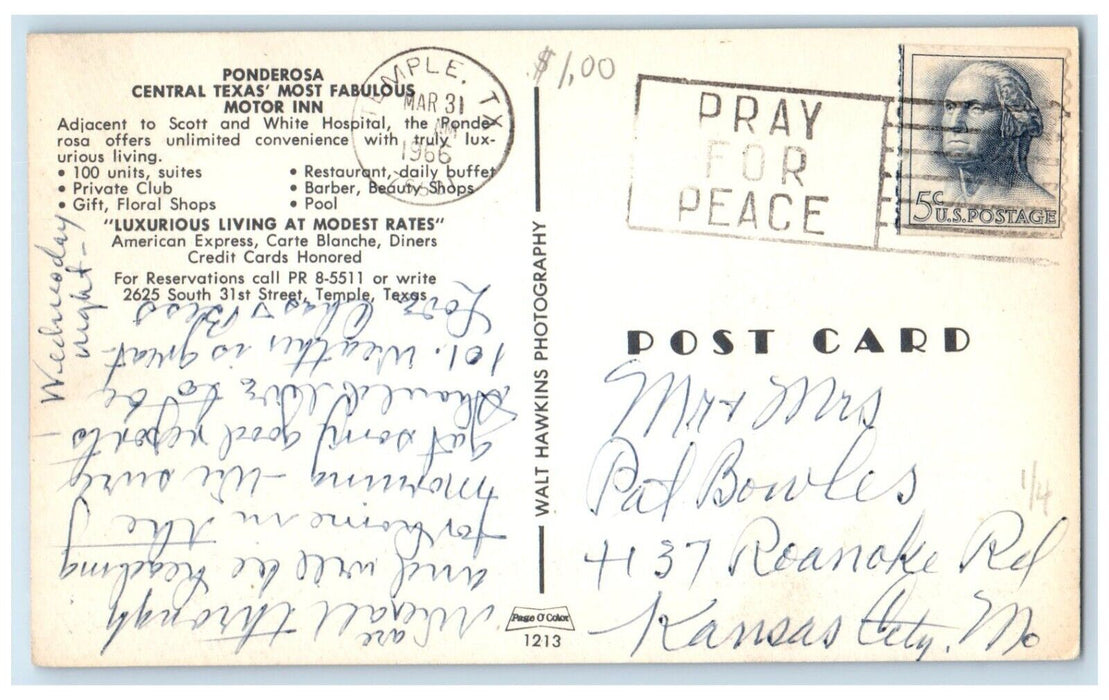 PONDEROSA
CENTRAL TEXAS' MOST FABULOUS
MOTOR INN
Adjacent to Scott and White Hospital, the Ponde-
rosa offers unlimited convenience with truly lux-
urious living.
• 100 units, suites
• Private Club
• Gift, Floral Shops
• Restaurant, daily buffet
• Barber, Beauty Shops
• Pool
"LUXURIOUS LIVING AT MODEST RATES"
American Express, Carte Blanche, Diners
Credit Cards Honored
For Reservations call PR 8-5511 or write
2625 South 31st Street, Temple, Texas
Wednesday
night-
are
We all through
and will be heading
for home in the
morning - We sure
got some good reports
should live to be
101. Weather is great
Love Chas & Bess
WALT HAWKINS PHOTOGRAPHY
Page O'Color
1213
TEMPLE, TX
MAR 31
AM
1966
$1,00
PRAY
FOR
PEACE
5c U.S. POSTAGE
POST CARD
Mr + Mrs
Pat Bowles
4137 Roanoke Rd
Kansas City, Mo
1/4